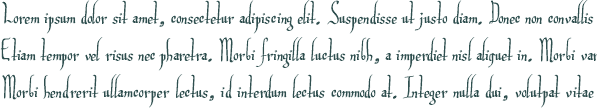 Lorem ipsum dolor sit amet, consectetur adipiscing elit. Suspendisse ut justo diam. Donec non convallis
Etiam tempor vel risus nec pharetra. Morbi fringilla luctus nibh, a imperdiet nisl aliquet in. Morbi var
Morbi hendrerit ullamcorper lectus, id interdum lectus commodo at. Integer nulla dui, volutpat vitae